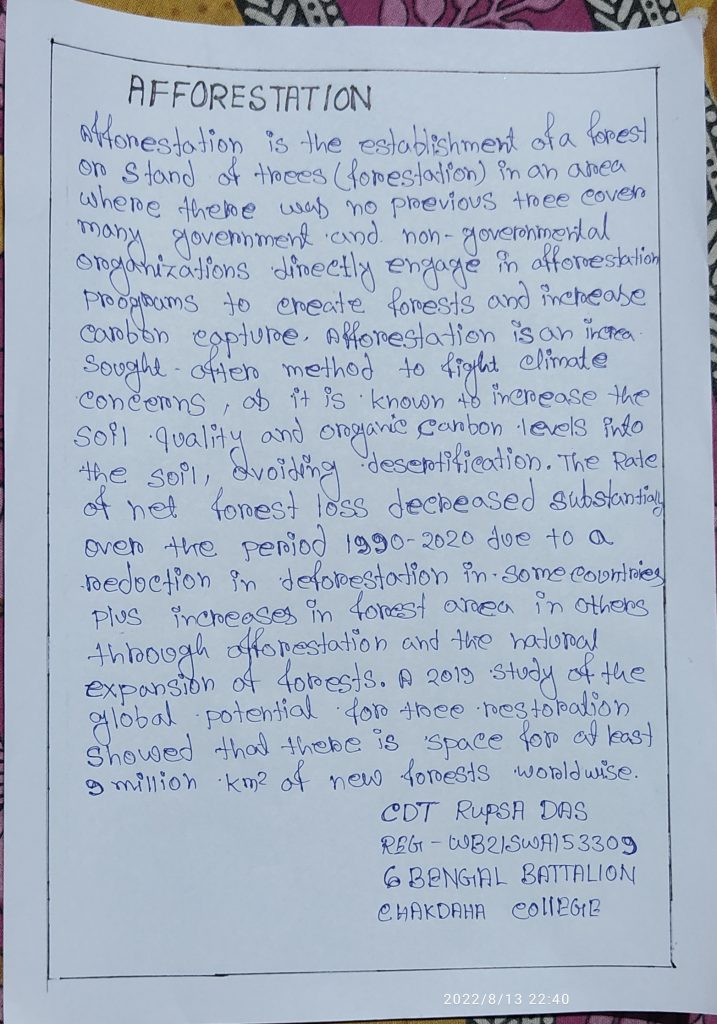 AFFORESTATION
Afforestation is the establishment of a forest
or stand of trees (forestation) in an area
where there was no previous tree cover
many government and non-governmental
organizations directly engage in afforestation
programs to create forests and increase
carbon capture. Afforestation is an increa
sought-after method to fight climate
concerns, as it is known to increase the
soil quality and organic carbon levels into
the soil, avoiding desertification. The Rate
of net forest loss decreased substantially
over the period 1990-2020 due to a
reduction in deforestation in some countries
plus increases in forest area in others
through afforestation and the natural
expansion of forests. A 2019 study of the
global potential for tree restoration
showed that there is space for at least
9 million km² of new forests worldwise.
CDT RUPSA DAS
REG - WB21SWA153309
6 BENGAL BATTALION
CHAKDAHA COllEGE
2022/8/13 22:40